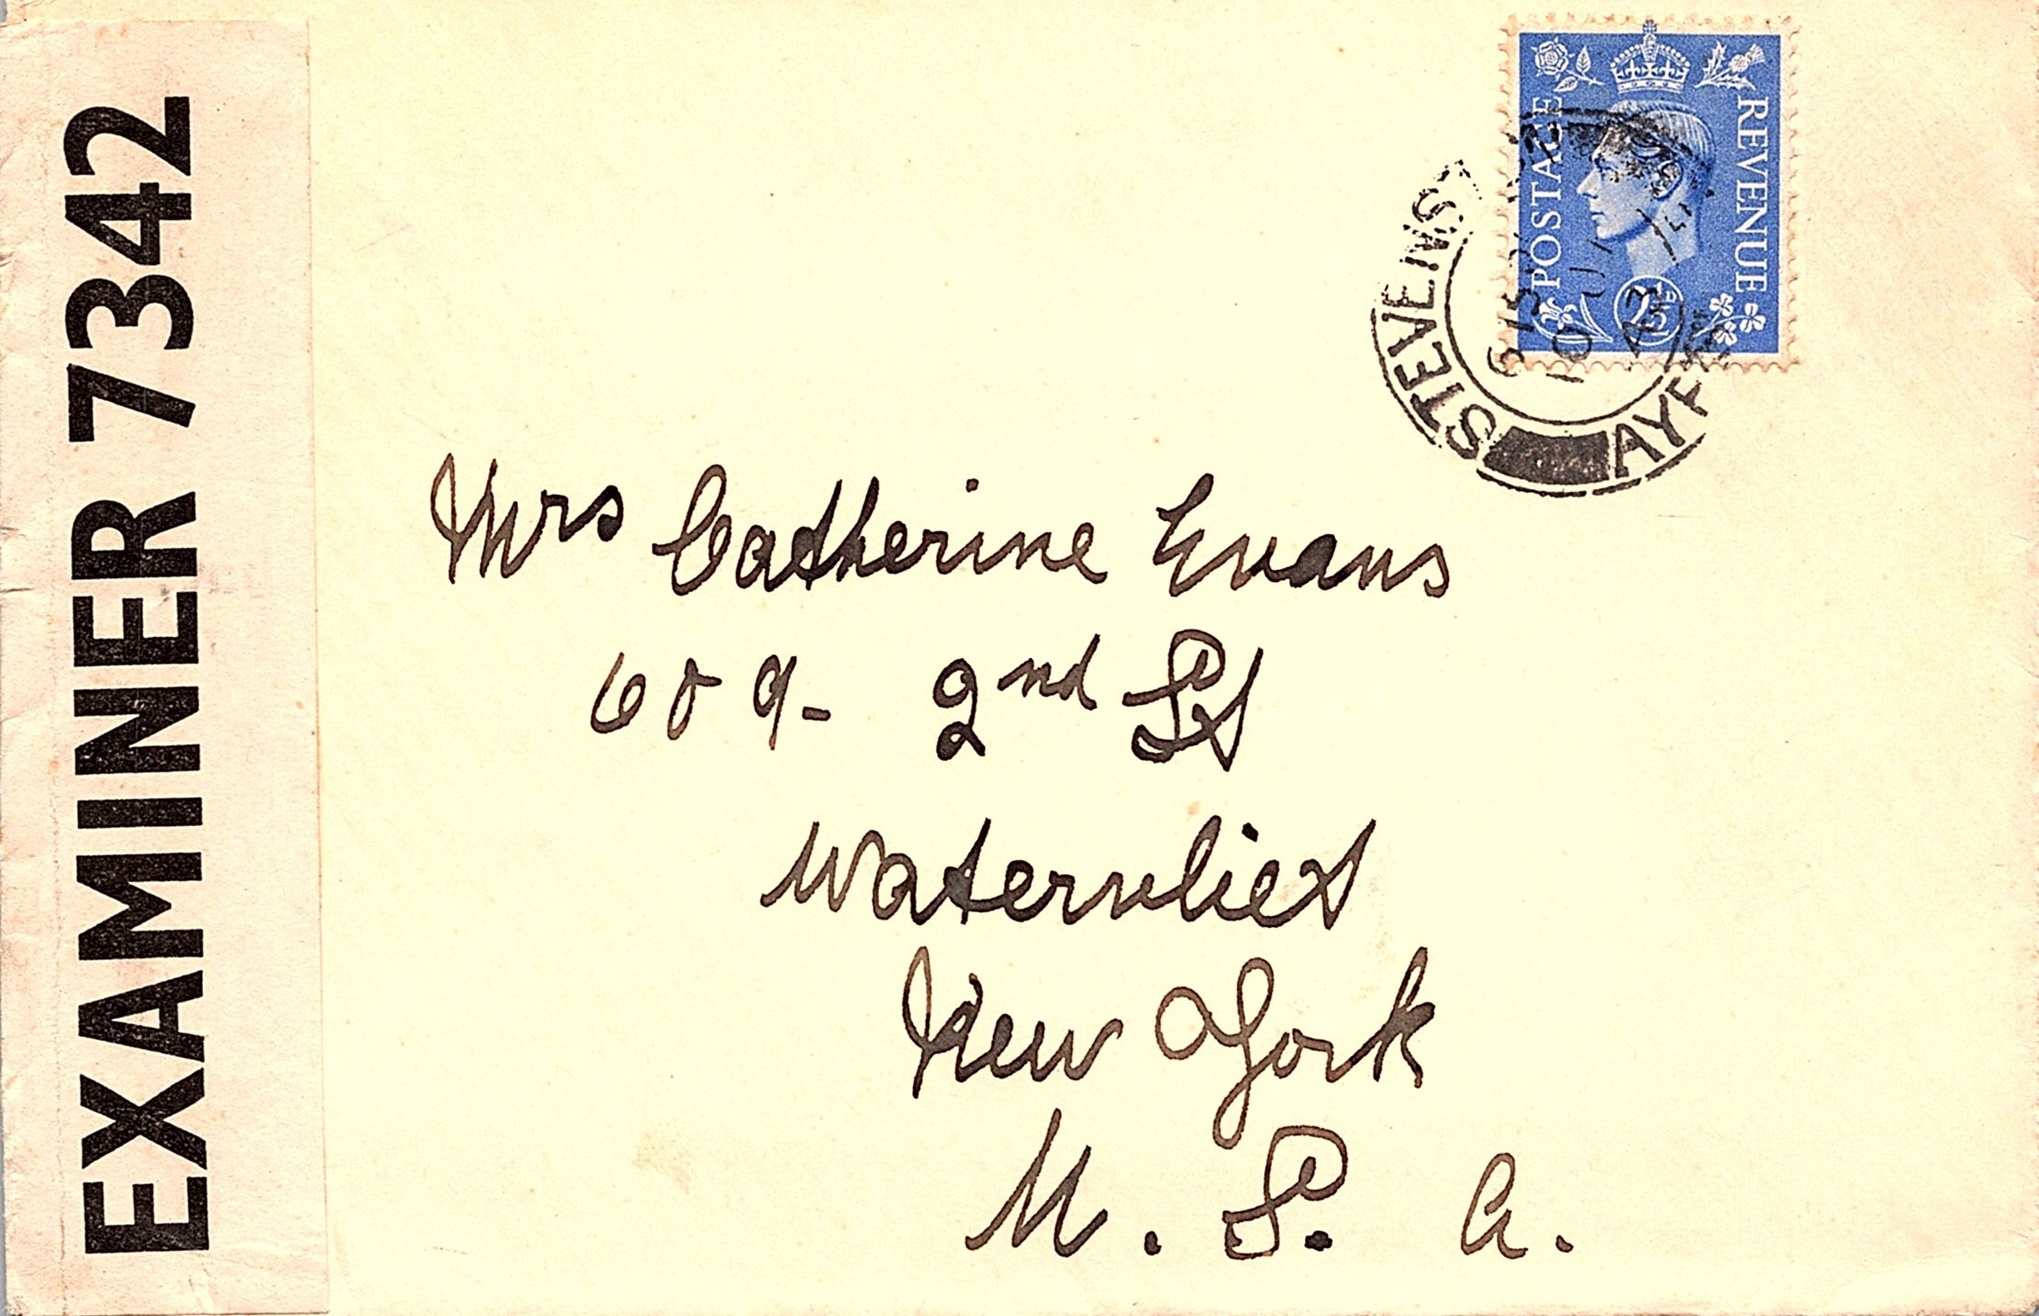 EXAMINER 7342
POSTAGE
REVENUE
2½D
STEVENS
AYR
Mrs Catherine Evans
609- 2nd St
Watervliet
New York
U. S. A.